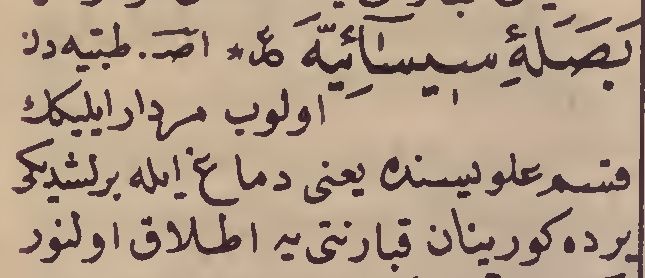 بَصَلَۀِ سِيسَآئِيَّه عى * اصـ. طبّيه دن
اولوب مردار ايليكك
قسم علويسنده يعنى دماغ ايله برلشديكى
يرده كورينان قبارنتى يه اطلاق اولنور